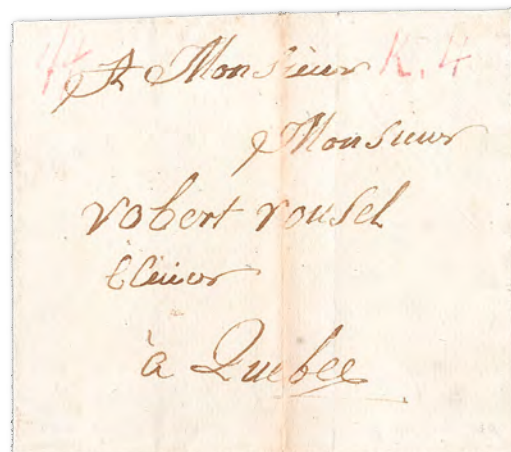 A Monsieur K. 4
Monsieur
robert rousel
à Quebec